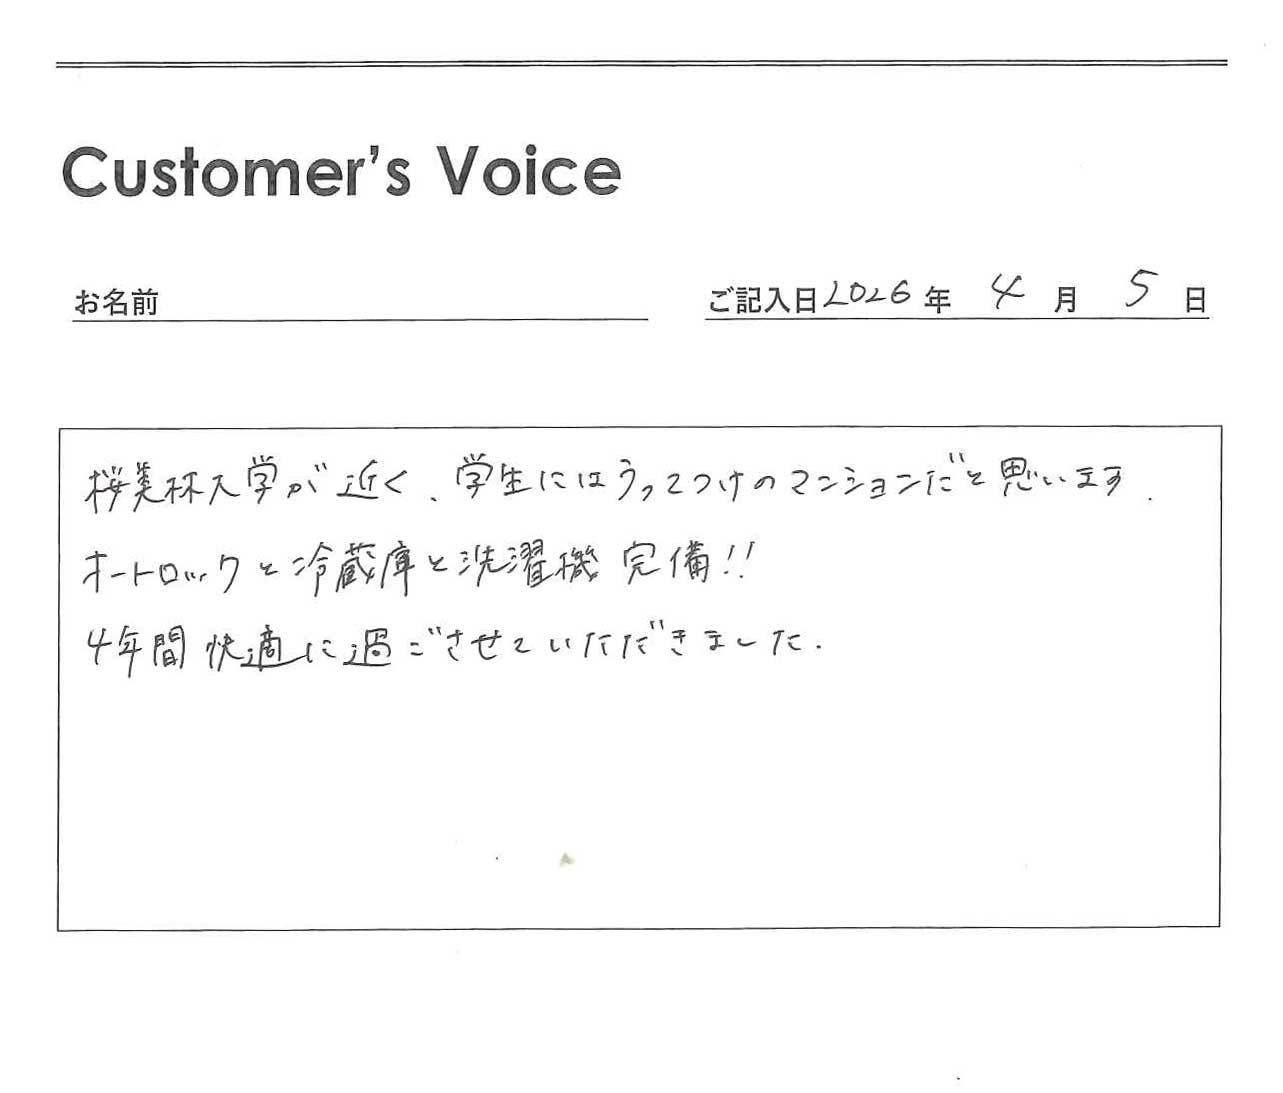 Customer's Voice
お名前
ご記入日2026年 4月 5日
桜美林大学が近く、学生にはうってつけのマンションだと思います.
オートロックと冷蔵庫と洗濯機 完備!!
4年間 快適に過ごさせていただきました.